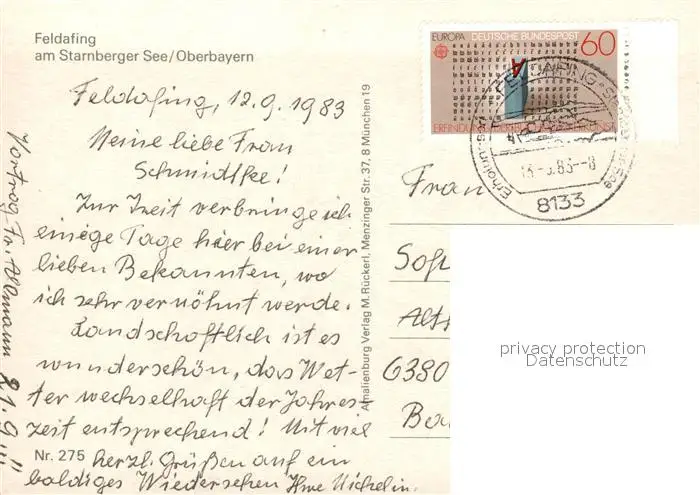 Feldafing
am Starnberger See/Oberbayern
Feldafing, 12.9.1983
Meine liebe Frau
Schmidlfee!
Zur Zeit verbringe ich
einige Tage hier bei einer
lieben Bekannten, wo
ich sehr verwöhnt werde.
Landschaftlich ist es
wunderschön, das Wet-
ter wechselhaft der Jahres-
zeit entsprechend! Mit viel
Nr. 275 herzl. Grüßen auf ein
baldiges Wiedersehen Ihre
Vortrag Fa. Allmann 21.9.!!!
Amalienburg Verlag M. Rückerl, Menzinger Str. 37, 8 München 19
EUROPA DEUTSCHE BUNDESPOST 60
FELDAFING
8133
Frau
Sof
6380
Ba
privacy protection
Datenschutz